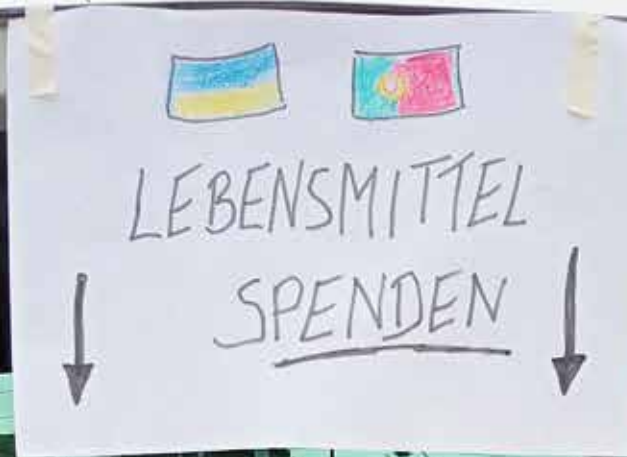 LEBENSMITTEL
SPENDEN